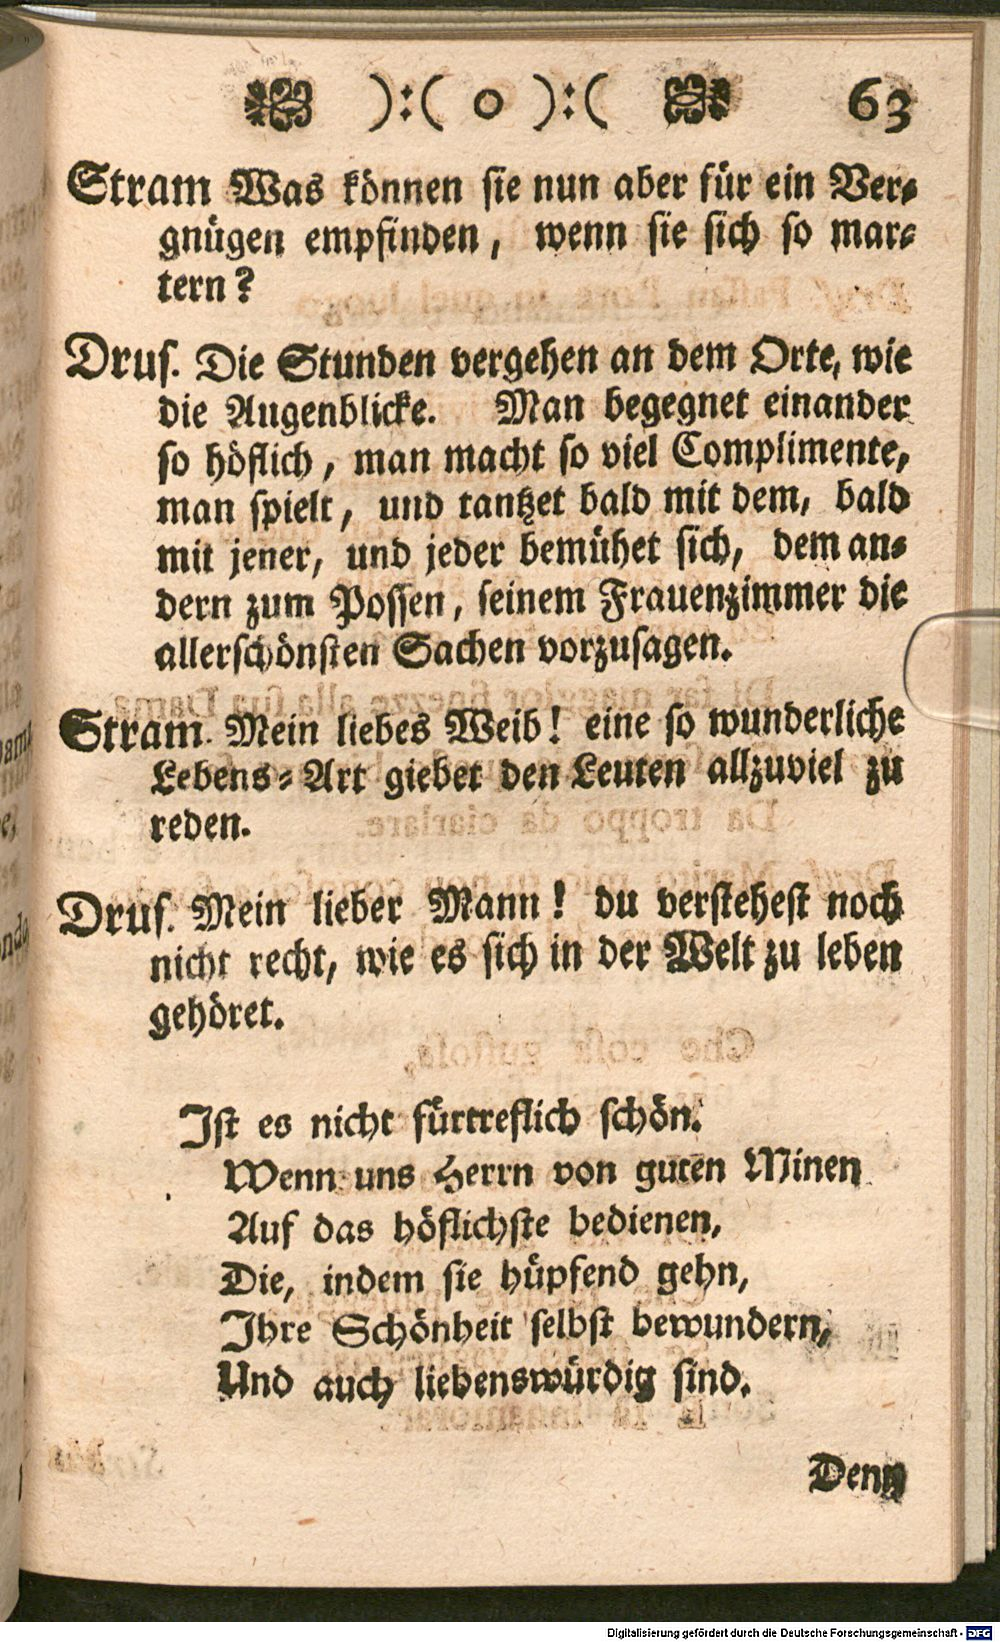 ):( o ):( 63
Stram Was können sie nun aber für ein Ver=
gnügen empfinden, wenn sie sich so mar=
tern?
Drus. Die Stunden vergehen an dem Orte, wie
die Augenblicke. Man begegnet einander
so höflich, man macht so viel Complimente,
man spielt, und tantzet bald mit dem, bald
mit jener, und jeder bemühet sich, dem an=
dern zum Possen, seinem Frauenzimmer die
allerschönsten Sachen vorzusagen.
Stram. Mein liebes Weib! eine so wunderliche
Lebens=Art giebet den Leuten allzuviel zu
reden.
Drus. Mein lieber Mann! du verstehest noch
nicht recht, wie es sich in der Welt zu leben
gehöret.
Ist es nicht fürtreflich schön.
Wenn uns Herrn von guten Minen
Auf das höflichste bedienen,
Die, indem sie hüpfend gehn,
Ihre Schönheit selbst bewundern,
Und auch liebenswürdig sind.
Denn
Digitalisierung gefördert durch die Deutsche Forschungsgemeinschaft - DFG